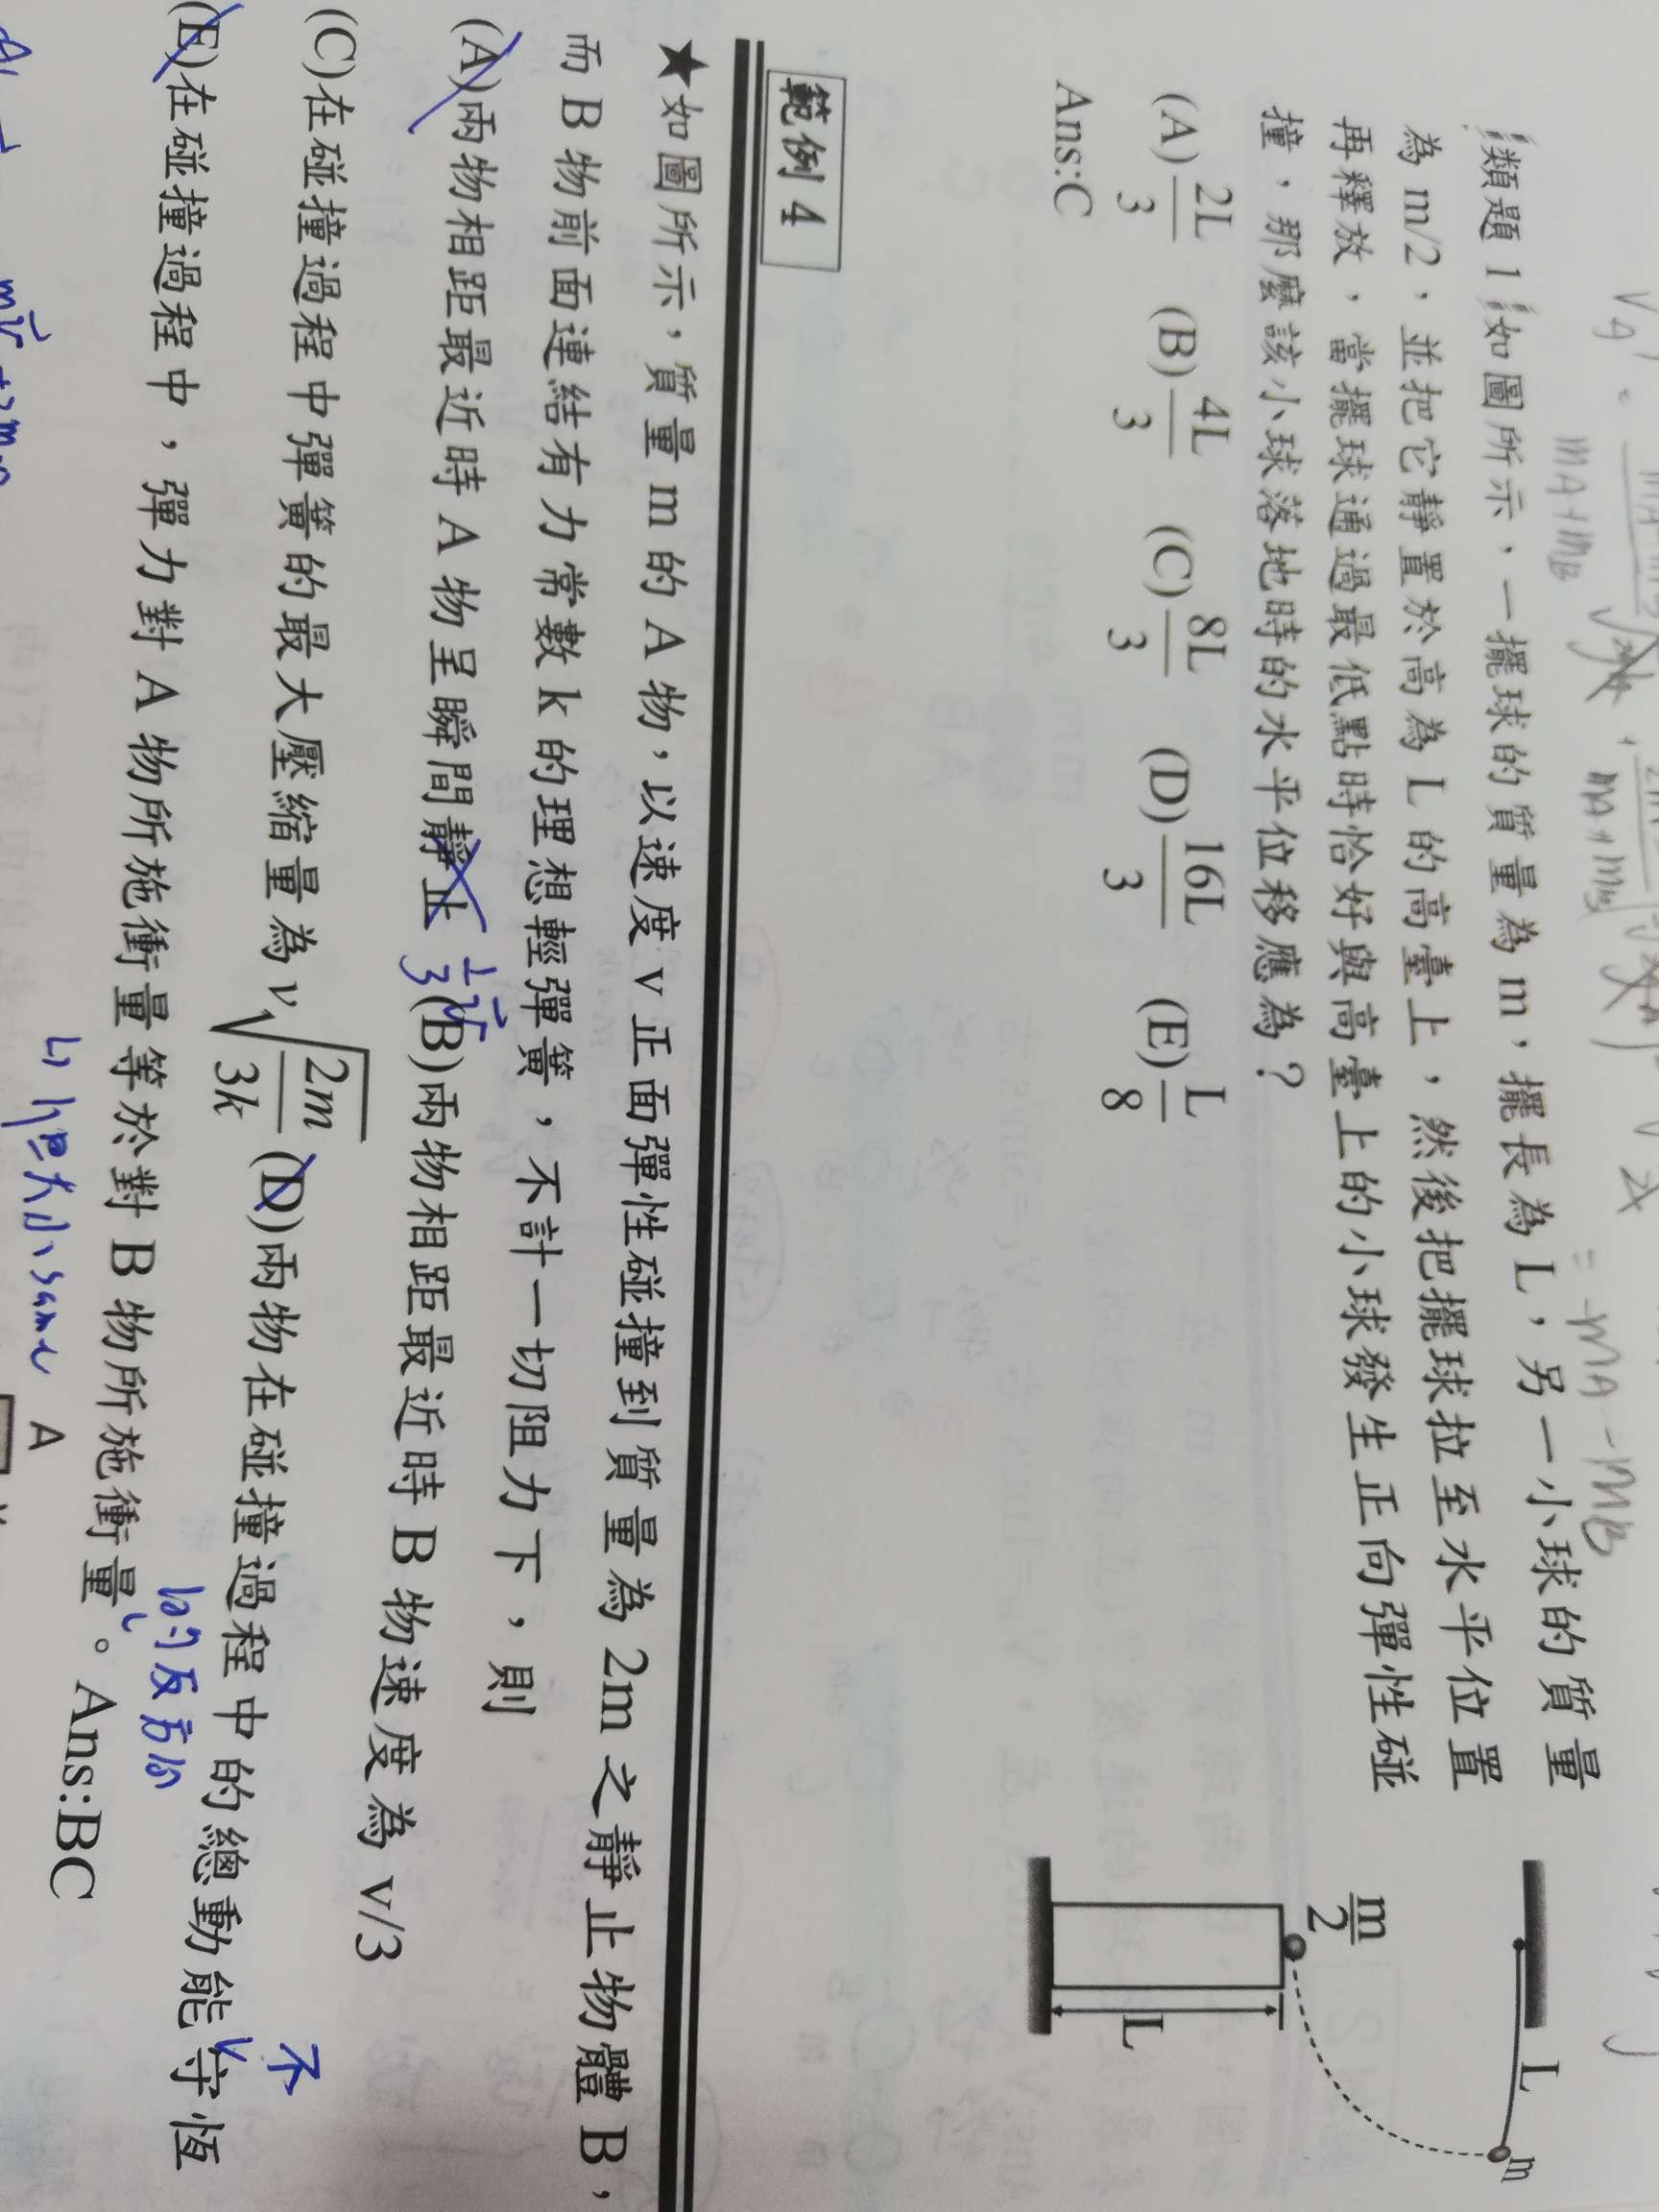 類題 1 如圖所示，一擺球的質量為 m，擺長為 L，另一小球的質量
為 m/2，並把它靜置於高為 L 的高臺上，然後把擺球拉至水平位置
再釋放，當擺球通過最低點時恰好與高臺上的小球發生正向彈性碰
撞，那麼該小球落地時的水平位移應為？
(A) 2L/3 (B) 4L/3 (C) 8L/3 (D) 16L/3 (E) L/8
Ans:C
L
m
m/2
L
範例 4
★如圖所示，質量 m 的 A 物，以速度 v 正面彈性碰撞到質量為 2m 之靜止物體 B，
而 B 物前面連結有力常數 k 的理想輕彈簧，不計一切阻力下，則
(A)兩物相距最近時 A 物呈瞬間靜止 (B)兩物相距最近時 B 物速度為 v/3
1/3 v
(C)在碰撞過程中彈簧的最大壓縮量為 v√(2m/3k) (D)兩物在碰撞過程中的總動能守恆
不
(E)在碰撞過程中，彈力對 A 物所施衝量等於對 B 物所施衝量。Ans:BC
的反方向
大小 same
A